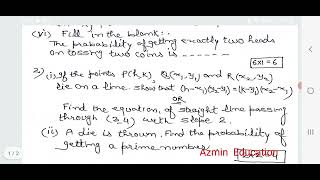 (vi) Fill in the blank:-
The probability of getting exactly two heads
on tossing two coins is -------
6x1=6
2) (i) If the points P(h,K), Q(x₁,y₁) and R(x₂,y₂)
lie on a line. show that (h-x₁)(y₂-y₁)=(K-y₁)(x₂-x₁)
OR
Find the equation, of straight line passing
through (3,4) with slope 2.
(ii) A die is thrown. Find the probability of
getting a prime number.
Azmin Education
1/2